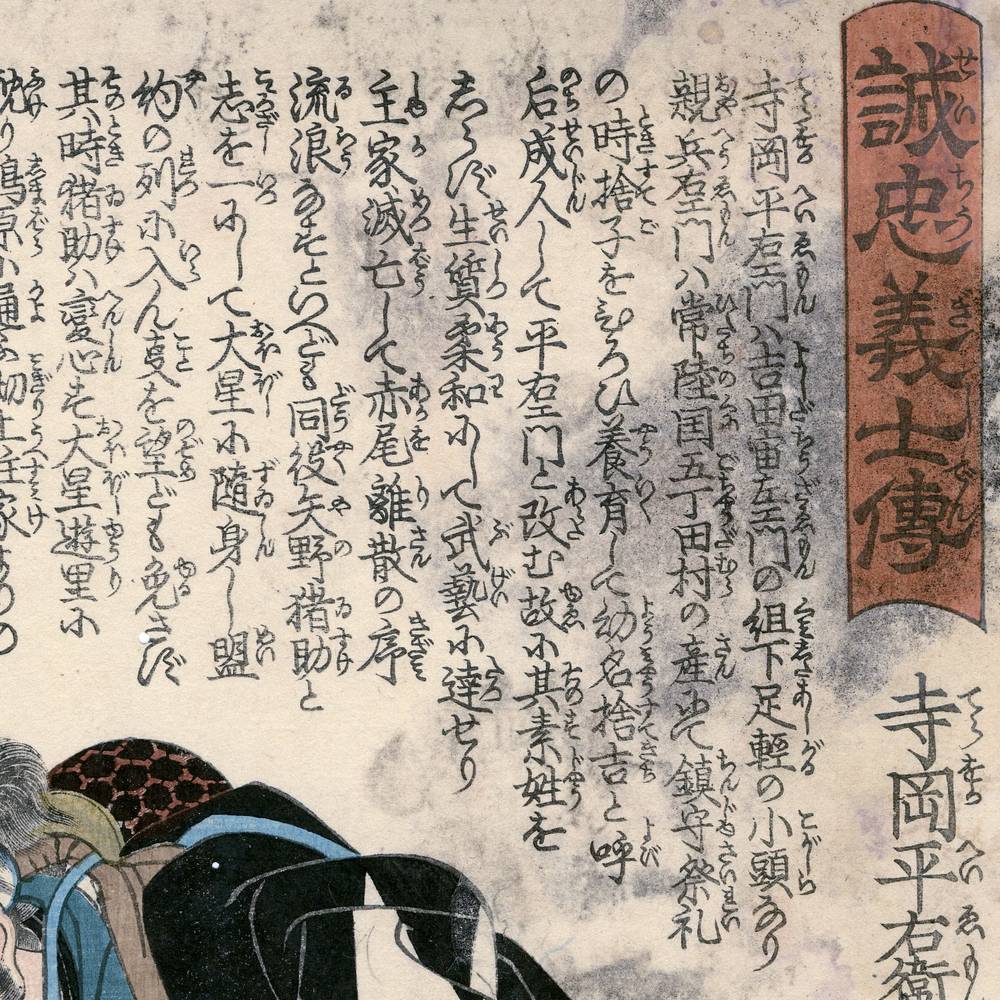 誠忠義士傳
寺岡平右衛
寺岡平右エ門ハ吉田宙左エ門の組下足軽の小頭なり
親兵右エ門ハ常陸国五丁田村の産にて鎮守祭礼
の時捨子をひろひ養育して幼名捨吉と呼
后成人して平右エ門と改む故に其素姓を
志らず生質柔和にして武藝に達せり
主家滅亡して赤尾離散の序
流浪なすといへども同役矢野猪助と
志を一にして大星に随身し盟
約の列に入ん事を望ども免さず
其時猪助ハ變心す大星遊里に